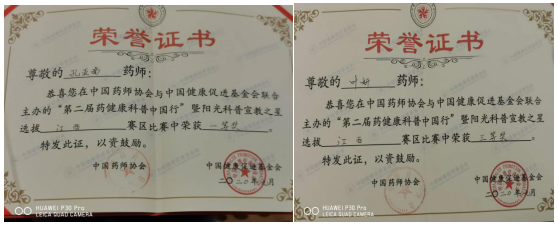 荣誉证书
尊敬的 孔芝南 药师：
恭喜您在中国药师协会与中国健康促进基金会联合
主办的“第二届药健康科普中国行”暨阳光科普宣教之星
选拔 江西 赛区比赛中荣获 一等奖
特发此证，以资鼓励。
中国药师协会 中国健康促进基金会
二〇二〇年 月
HUAWEI P30 Pro
LEICA QUAD CAMERA
荣誉证书
尊敬的 药师：
恭喜您在中国药师协会与中国健康促进基金会联合
主办的“第二届药健康科普中国行”暨阳光科普宣教之星
选拔 江西 赛区比赛中荣获 三等奖
特发此证，以资鼓励。
中国药师协会 中国健康促进基金会
二〇二〇年 月
HUAWEI P30 Pro
LEICA QUAD CAMERA